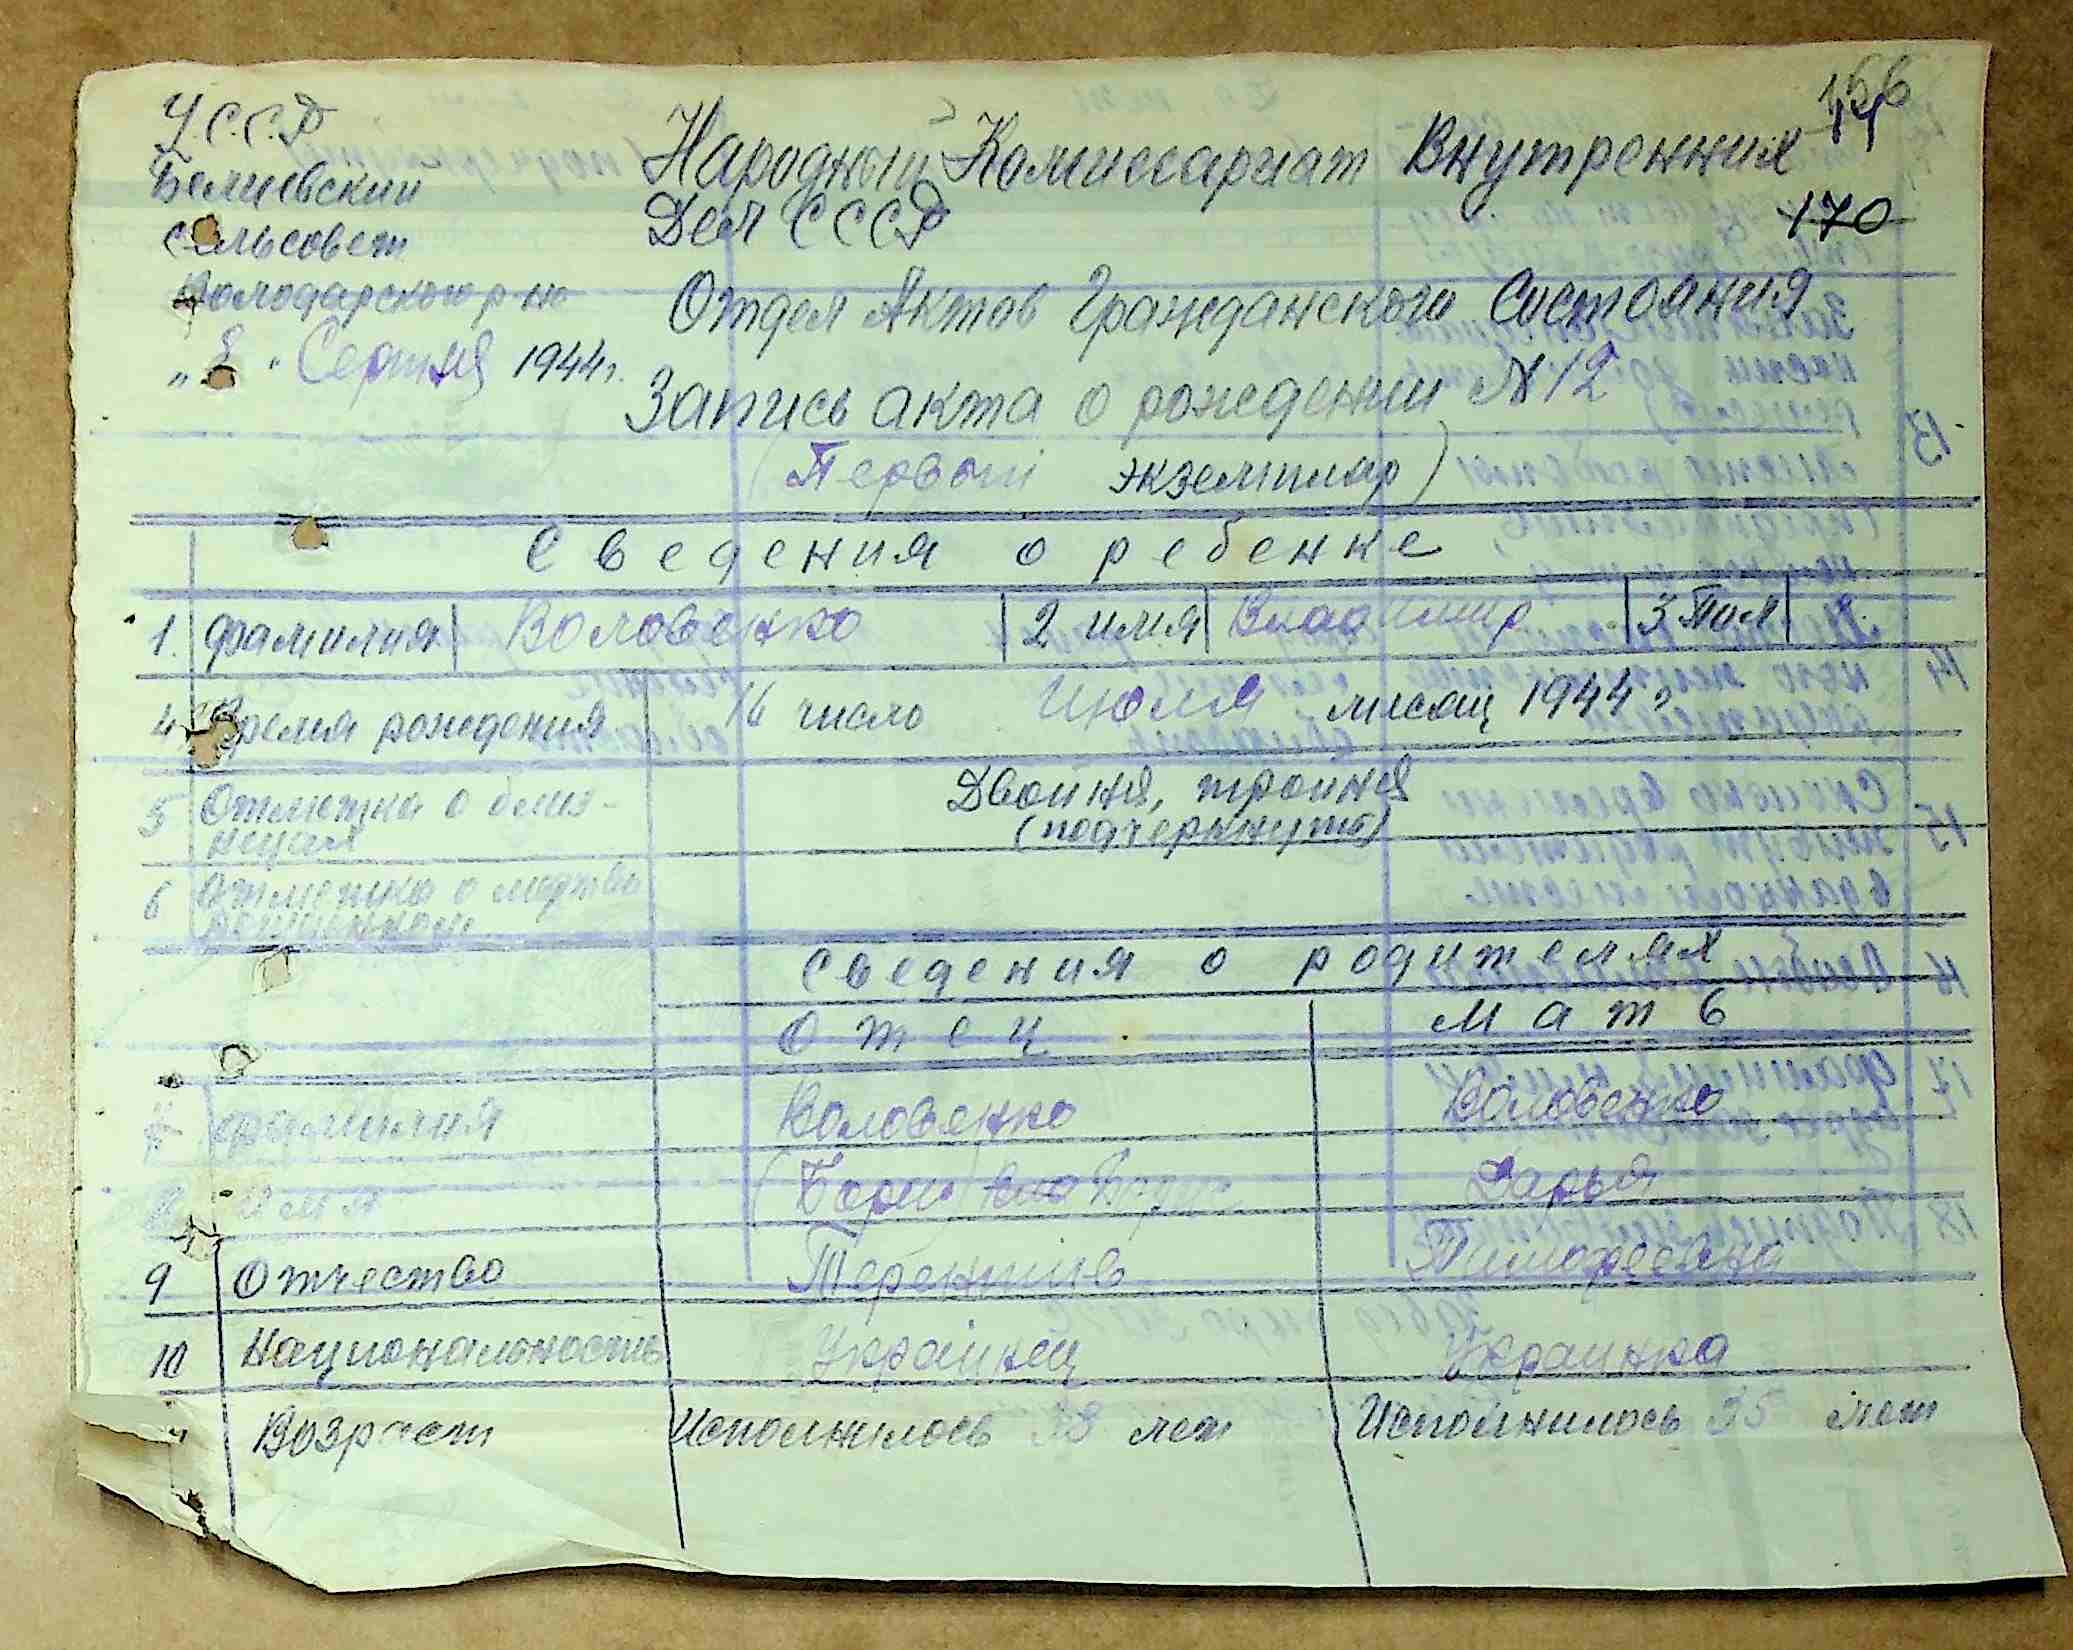 У.С.С.Р
Белиевский
сельсовет
Володарского р-на
„ 8 " Сертня 1944 г.
166
14
170
Народный Комиссариат Внутренних
Дел СССР
Отдел Актов Гражданского Состояния
Запись акта о рождении №12
(Первый экземпляр)
Сведения о ребенке
1. фамилия Воловенко 2 имя Владимир 3 Пол
4. Время рождения 16 число Июля месяц 1944 г.
5 Отметка о близ-
нецах
Двойня, тройня
(подчеркнуть)
6 Отметка о мертво
рожденном
Сведения о родителях
Отец Мать
фамилия Воловенко Воловенко
8 имя (Борис) Дарья
9 Отчество Терентиев Тимофеевна
10 Национальность Украинец Украинка
Возраст Исполнилось 38 лет Исполнилось 35 лет